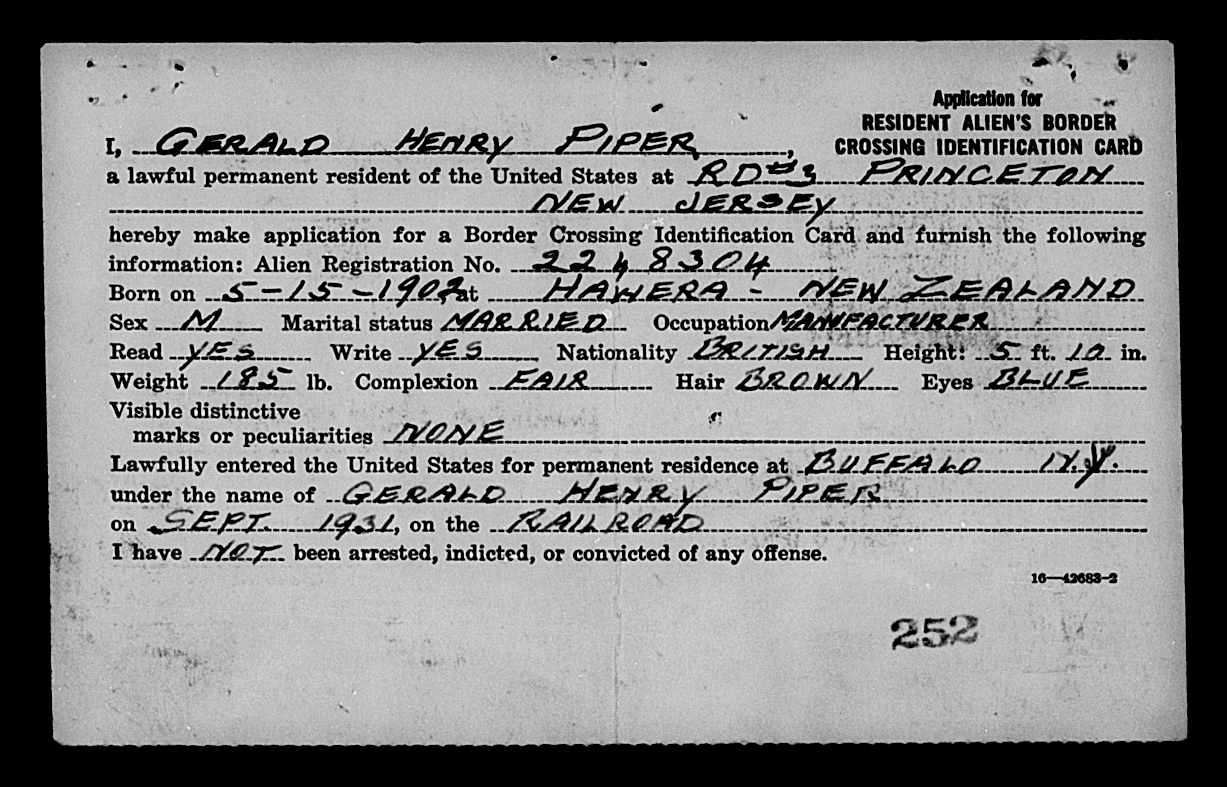 Application for
RESIDENT ALIEN'S BORDER
CROSSING IDENTIFICATION CARD
I, GERALD HENRY PIPER,
a lawful permanent resident of the United States at RD#3 PRINCETON
NEW JERSEY
hereby make application for a Border Crossing Identification Card and furnish the following
information: Alien Registration No. 2248304
Born on 5-15-1902 at HAWERA - NEW ZEALAND
Sex M Marital status MARRIED Occupation MANUFACTURER
Read YES Write YES Nationality BRITISH Height: 5 ft. 10 in.
Weight 185 lb. Complexion FAIR Hair BROWN Eyes BLUE
Visible distinctive
marks or peculiarities NONE
Lawfully entered the United States for permanent residence at BUFFALO N.Y.
under the name of GERALD HENRY PIPER
on SEPT. 1931, on the RAILROAD
I have NOT been arrested, indicted, or convicted of any offense.
16—42683-2
252